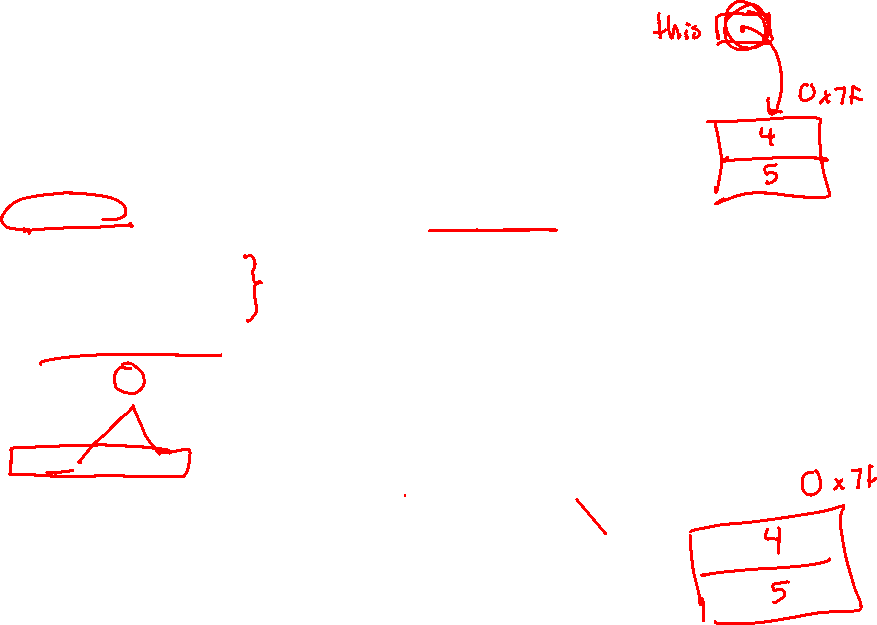 this
0x7f
4
5
}
0x7f
4
5